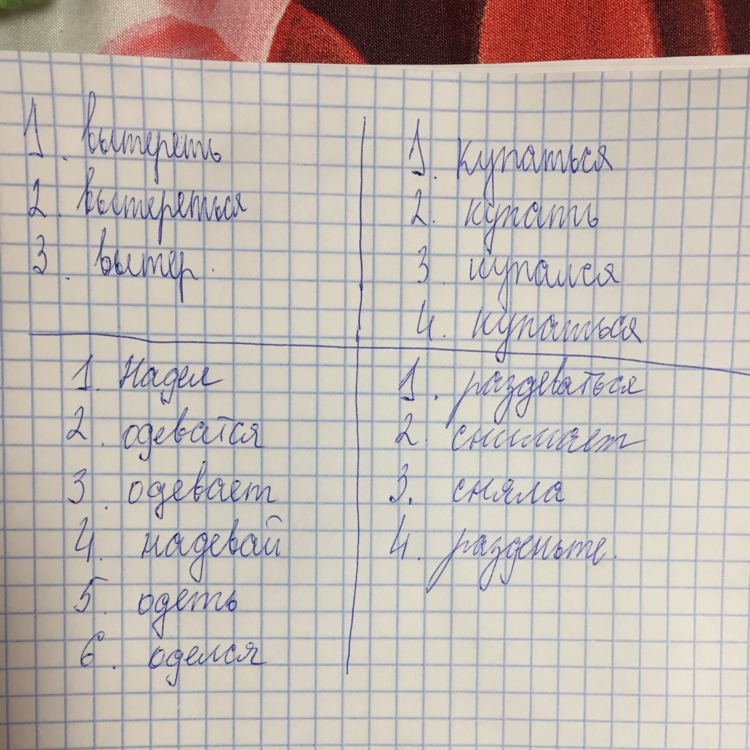 1. вытереть
2. вытереться
3. вытер.
1. купаться
2. купать
3. купался
4. купаться
1. Надел
2. одеватся
3. одевает
4. надевай
5. одеть
6. оделся
1. раздеваться
2. снимает
3. сняла
4. разденьте.